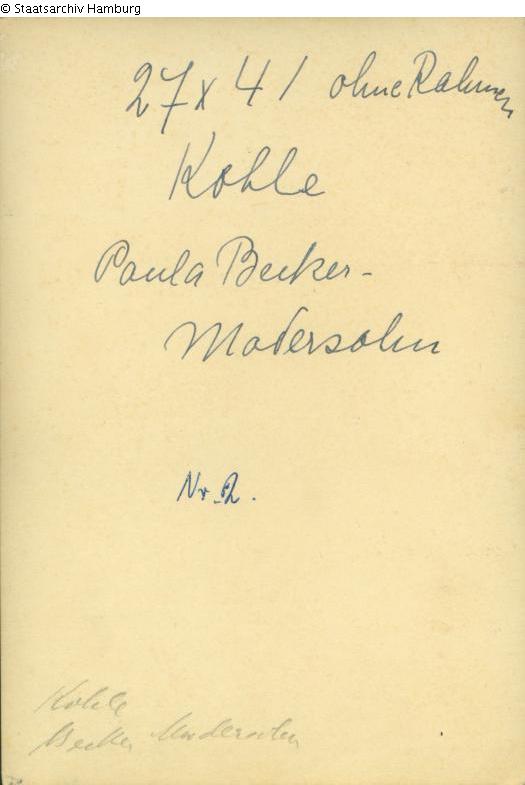 © Staatsarchiv Hamburg
27 x 41 ohne Rahmen
Kohle
Paula Becker-
Modersohn
Nr. 2.
Kohle
Becker Modersohn